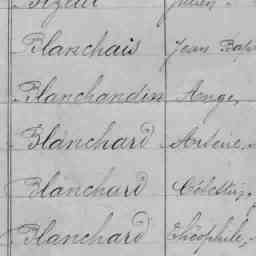 Julien
Blanchais Jean Bap
Blanchandin Ange,
Blanchard Arsène,
Blanchard Célestin,
Blanchard Théophile,